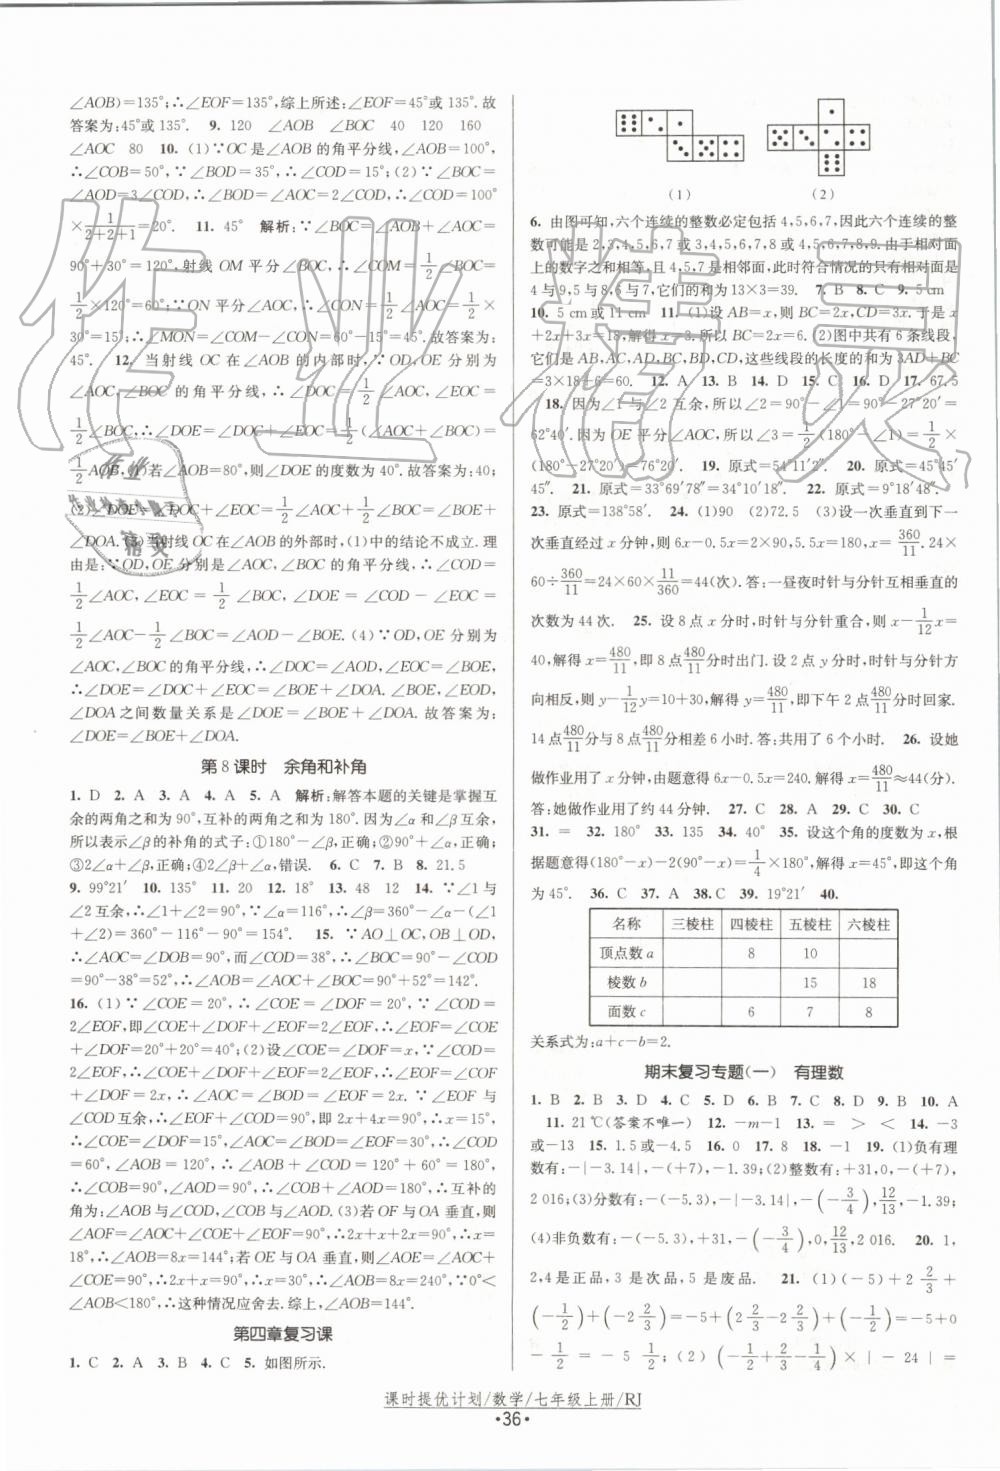 ∠AOB)=135°;∴∠EOF=135°,综上所述:∠EOF=45°或135°.故
答案为:45°或135°. 9. 120 ∠AOB ∠BOC 40 120 160
∠AOC 80 10. (1)∵OC是∠AOB的角平分线,∠AOB=100°,
∴∠COB=50°,∵∠BOD=35°,∴∠COD=15°;(2)∵∠BOC=
∠AOD=3∠COD,∴∠BOD=∠AOC=2∠COD,∴∠COD=100°
×1/(2+2+1)=20°. 11. 45° 解析:∵∠BOC=∠AOB+∠AOC=
90°+30°=120°,射线OM平分∠BOC,∴∠COM=1/2∠BOC=
1/2×120°=60°;∵ON平分∠AOC,∴∠CON=1/2∠AOC=1/2×
30°=15°;∴∠MON=∠COM−∠CON=60°−15°=45°.故答案为:
45°. 12. 当射线OC在∠AOB的内部时,∵OD,OE分别为
∠AOC,∠BOC的角平分线,∴∠DOC=1/2∠AOC,∠EOC=
1/2∠BOC,∴∠DOE=∠DOC+∠EOC=1/2(∠AOC+∠BOC)=
1/2∠AOB,(1)若∠AOB=80°,则∠DOE的度数为40°.故答案为:40;
(2)∠DOE=∠DOC+∠EOC=∠AOD+∠BOE=∠BOE+
∠DOA.(3)当射线OC在∠AOB的外部时,(1)中的结论不成立.理
由是:∵OD,OE分别是∠AOC,∠BOC的角平分线,∴∠COD=
1/2∠AOC,∠EOC=1/2∠BOC,∴∠DOE=∠COD−∠EOC=
1/2∠AOC−1/2∠BOC=∠AOD−∠BOE.(4)∵OD,OE分别为
∠AOC,∠BOC的角平分线,∴∠DOC=∠AOD,∠EOC=∠BOE,
∴∠DOE=∠DOC+∠EOC=∠BOE+∠DOA.∠BOE,∠EOD,
∠DOA之间数量关系是∠DOE=∠BOE+∠DOA.故答案为:
∠DOE=∠BOE+∠DOA.
第8课时 余角和补角
1. D 2. A 3. A 4. A 5. A 解析:解答本题的关键是掌握互
余的两角之和为90°,互补的两角之和为180°.因为∠α和∠β互余,
所以表示∠β的补角的式子:①180°−∠β,正确;②90°+∠α,正确;
③2∠α+∠β,正确;④2∠β+∠α,错误. 6. C 7. B 8. 21.5
9. 99°21′ 10. 135° 11. 20 12. 18° 13. 48 12 14. ∵∠1与
∠2互余,∴∠1+∠2=90°,∵∠α=116°,∴∠β=360°−∠α−(∠1
+∠2)=360°−116°−90°=154°. 15. ∵AO⊥OC,OB⊥OD,
∴∠AOC=∠DOB=90°,而∠COD=38°,∴∠BOC=90°−∠COD
=90°−38°=52°,∴∠AOB=∠AOC+∠BOC=90°+52°=142°.
16. (1)∵∠COE=20°,∴∠COE=∠DOF=20°,∵∠COD=
2∠EOF,即∠COE+∠DOF+∠EOF=2∠EOF,∴∠EOF=∠COE
+∠DOF=20°+20°=40°;(2)设∠COE=∠DOF=x,∵∠COD=
2∠EOF,∴∠COE+∠DOF+∠EOF=2∠EOF,∴∠EOF=∠COF
+∠DOF=2x,∴∠AOC=∠BOD=∠EOF=2x.∵∠EOF与
∠COD互余,∴∠EOF+∠COD=90°,即2x+4x=90°,∴x=15°,
∴∠COE=∠DOF=15°,∠AOC=∠BOD=∠EOF=30°,∠COD
=60°,∠AOB=120°,∴∠AOB+∠COD=120°+60°=180°,
∴∠COB=90°,∠AOD=90°,∴∠COB+∠AOD=180°,∴互补的
角为:∠AOB与∠COD,∠COB与∠AOD;(3)若OF与OA垂直,则
∠AOF=∠AOC+∠COE+∠EOF=90°,∴2x+x+2x=90°,∴x=
18°,∴∠AOB=8x=144°;若OE与OA垂直,则∠AOE=∠AOC+
∠COE=90°,∴2x+x=90°,∴x=30°,∴∠AOB=8x=240°,∵0°<
∠AOB<180°,∴这种情况应舍去.综上,∠AOB=144°.
第四章复习课
1. C 2. A 3. B 4. C 5. 如图所示.
(1) (2)
6. 由图可知,六个连续的整数必定包括4,5,6,7,因此六个连续的整
数可能是2,3,4,5,6,7或3,4,5,6,7,8或4,5,6,7,8,9.由于相对面
上的数字之和相等,且4,5,7是相邻面,此时符合情况的只有相对面是
4与9,5与8,6与7,它们的和为13×3=39. 7. B 8. C 9. 5 cm
10. 5 cm或11 cm 11. (1)设AB=x,则BC=2x,CD=3x.于是x
+2x+3x=18,解得x=3.所以BC=2x=6.(2)图中共有6条线段,
它们是AB,AC,AD,BC,BD,CD,这些线段的长度的和为3AD+BC
=3×18+6=60. 12. A 13. B 14. D 15. C 16. D 17. 67.5
18. 因为∠1与∠2互余,所以∠2=90°−∠1=90°−27°20′=
62°40′.因为OE平分∠BOC,所以∠3=1/2(180°−∠1)=1/2×
(180°−27°20′)=76°20′. 19. 原式=54°11′2″. 20. 原式=45°45′
45″. 21. 原式=33°69′78″=34°10′18″. 22. 原式=9°18′48″.
23. 原式=138°58′. 24. (1)90 (2)72.5 (3)设一次垂直到下一
次垂直经过x分钟,则6x−0.5x=2×90,5.5x=180,x=360/11.24×
60÷360/11=24×60×11/360=44(次).答:一昼夜时针与分针互相垂直的
次数为44次. 25. 设8点x分时,时针与分针重合,则x−1/12x=
40,解得x=480/11,即8点480/11分时出门.设2点y分时,时针与分针方
向相反,则y−1/12y=10+30,解得y=480/11,即下午2点480/11分时回家.
14点480/11分与8点480/11分相差6小时.答:共用了6个小时. 26. 设她
做作业用了x分钟,由题意得6x−0.5x=240.解得x=480/11≈44(分).
答:她做作业用了约44分钟. 27. C 28. A 29. C 30. C
31. = 32. 180° 33. 135 34. 40° 35. 设这个角的度数为x,根
据题意得(180°−x)−2(90°−x)=1/4×180°,解得x=45°,即这个角
为45°. 36. C 37. A 38. C 39. 19°21′ 40.
名称 三棱柱 四棱柱 五棱柱 六棱柱
顶点数a 8 10
棱数b 15 18
面数c 6 7 8
关系式为:a+c−b=2.
期末复习专题(一) 有理数
1. B 2. B 3. D 4. C 5. D 6. B 7. C 8. D 9. B 10. A
11. 21℃(答案不唯一) 12. −m−1 13. = > < 14. −3
或−13 15. 1.5或−4.5 16. 0 17. 8 18. −1 19. (1)负有理
数有:−|−3.14|,−(+7),−1.39;(2)整数有:+31,−(+7),0,
2 016;(3)分数有:−(−5.3),−|−3.14|,−(−3/4),12/13,−1.39;
(4)非负数有:−(−5.3),+31,−(−3/4),0,12/13,2 016. 20. 1,
2,4是正品,3是次品,5是废品. 21. (1)(−5)+2 2/3+
(−1/2)+(−2 2/3)=−5+(2 2/3−2 2/3)+(−1/2)=−5+0
−1/2=−5 1/2;(2)(−7/12−5/6+1−3/4)×|−24|=
课时提优计划/数学/七年级上册/RJ
·36·
作业精灵